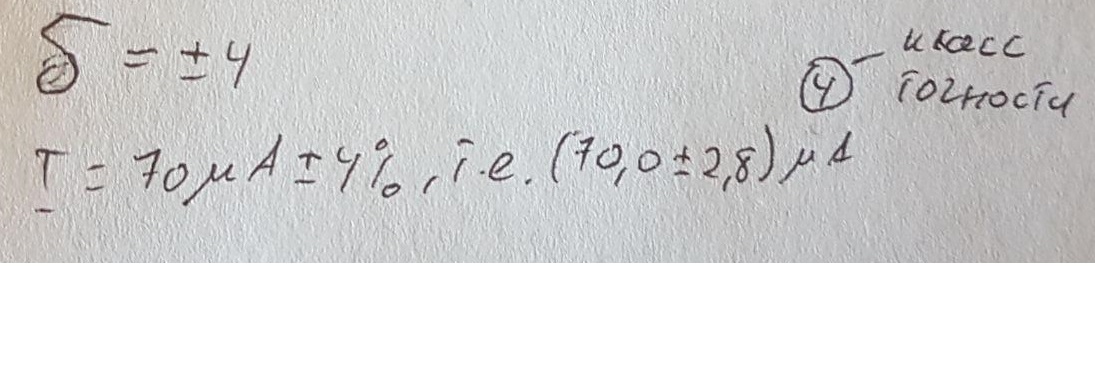 δ = ± 4
④ – класс
точности
I = 70 μA ± 4%, i.e. (70,0 ± 2,8) μA